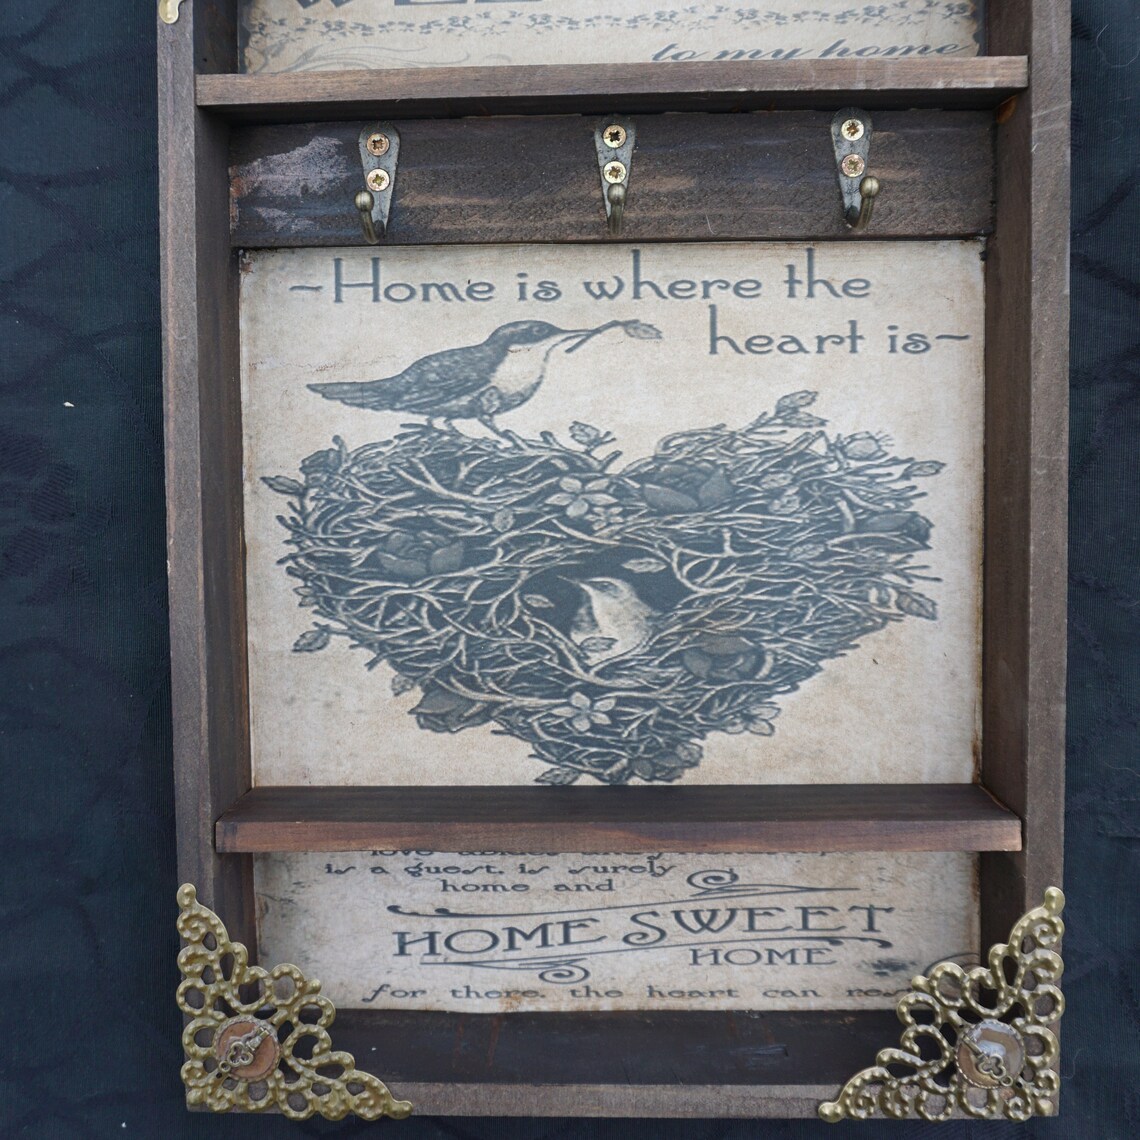 to my home
~Home is where the
heart is~
is a guest, is surely
home and
HOME SWEET
HOME
for there, the heart can